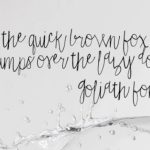 the quick brown fox
umps over the lazy do
goliath fon